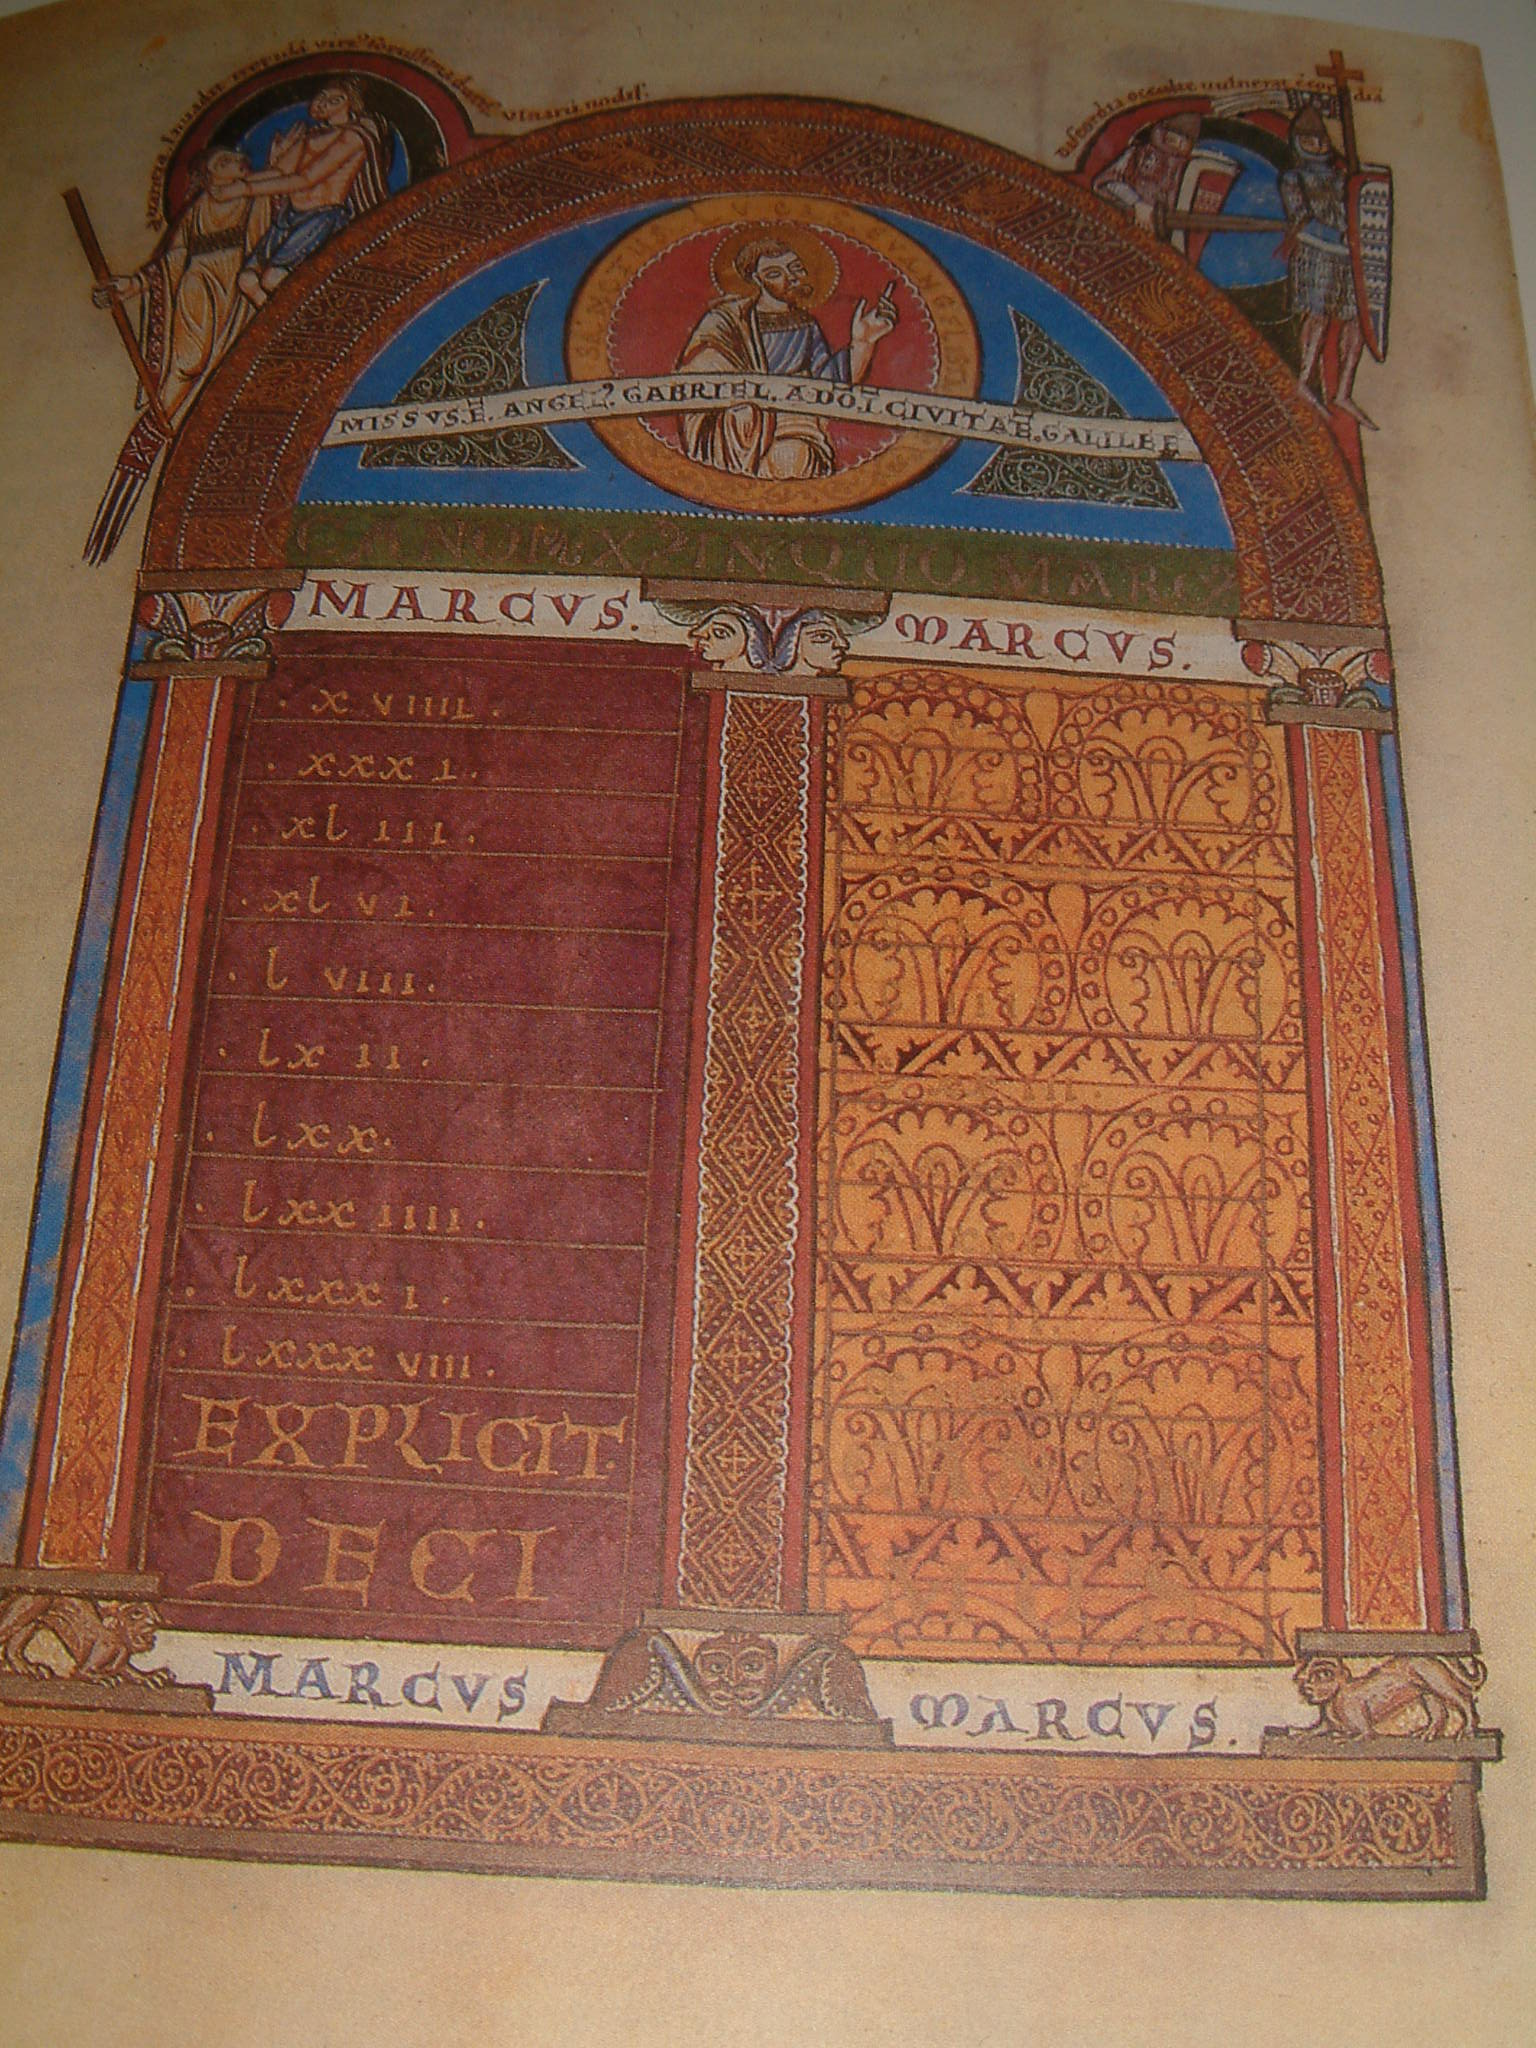 vinarū nodis.
SANCTUS LUCAS EVANGELISTA
MISSVS.Ē. ANGEL᾿. GABRIEL. A DŌ. Ī. CIVITAĒ. GALILEE
CANON X᾿ IN QUO MARC᾿
MARCVS.
MARCVS.
. x viiii.
. xxx i.
. xl iii.
. xl vi.
. l viii.
. lx ii.
. lxx.
. lxx iiii.
. lxxx i.
. lxxx viii.
EXPLICIT
DECI
MARCVS
MARCVS.